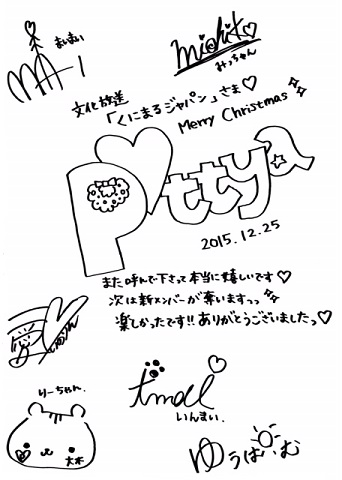 まいまい
michiko
みっちゃん
文化放送
「くにまるジャパン」さま♡
Merry Christmas
Pottya
2015.12.25
また呼んで下さって本当に嬉しいです♡
次は新メンバーが奪いますっっ
楽しかったです!!ありがとうございましたっ♡
りーちゃん.
大木
いんまい.
ゆぅはいむ